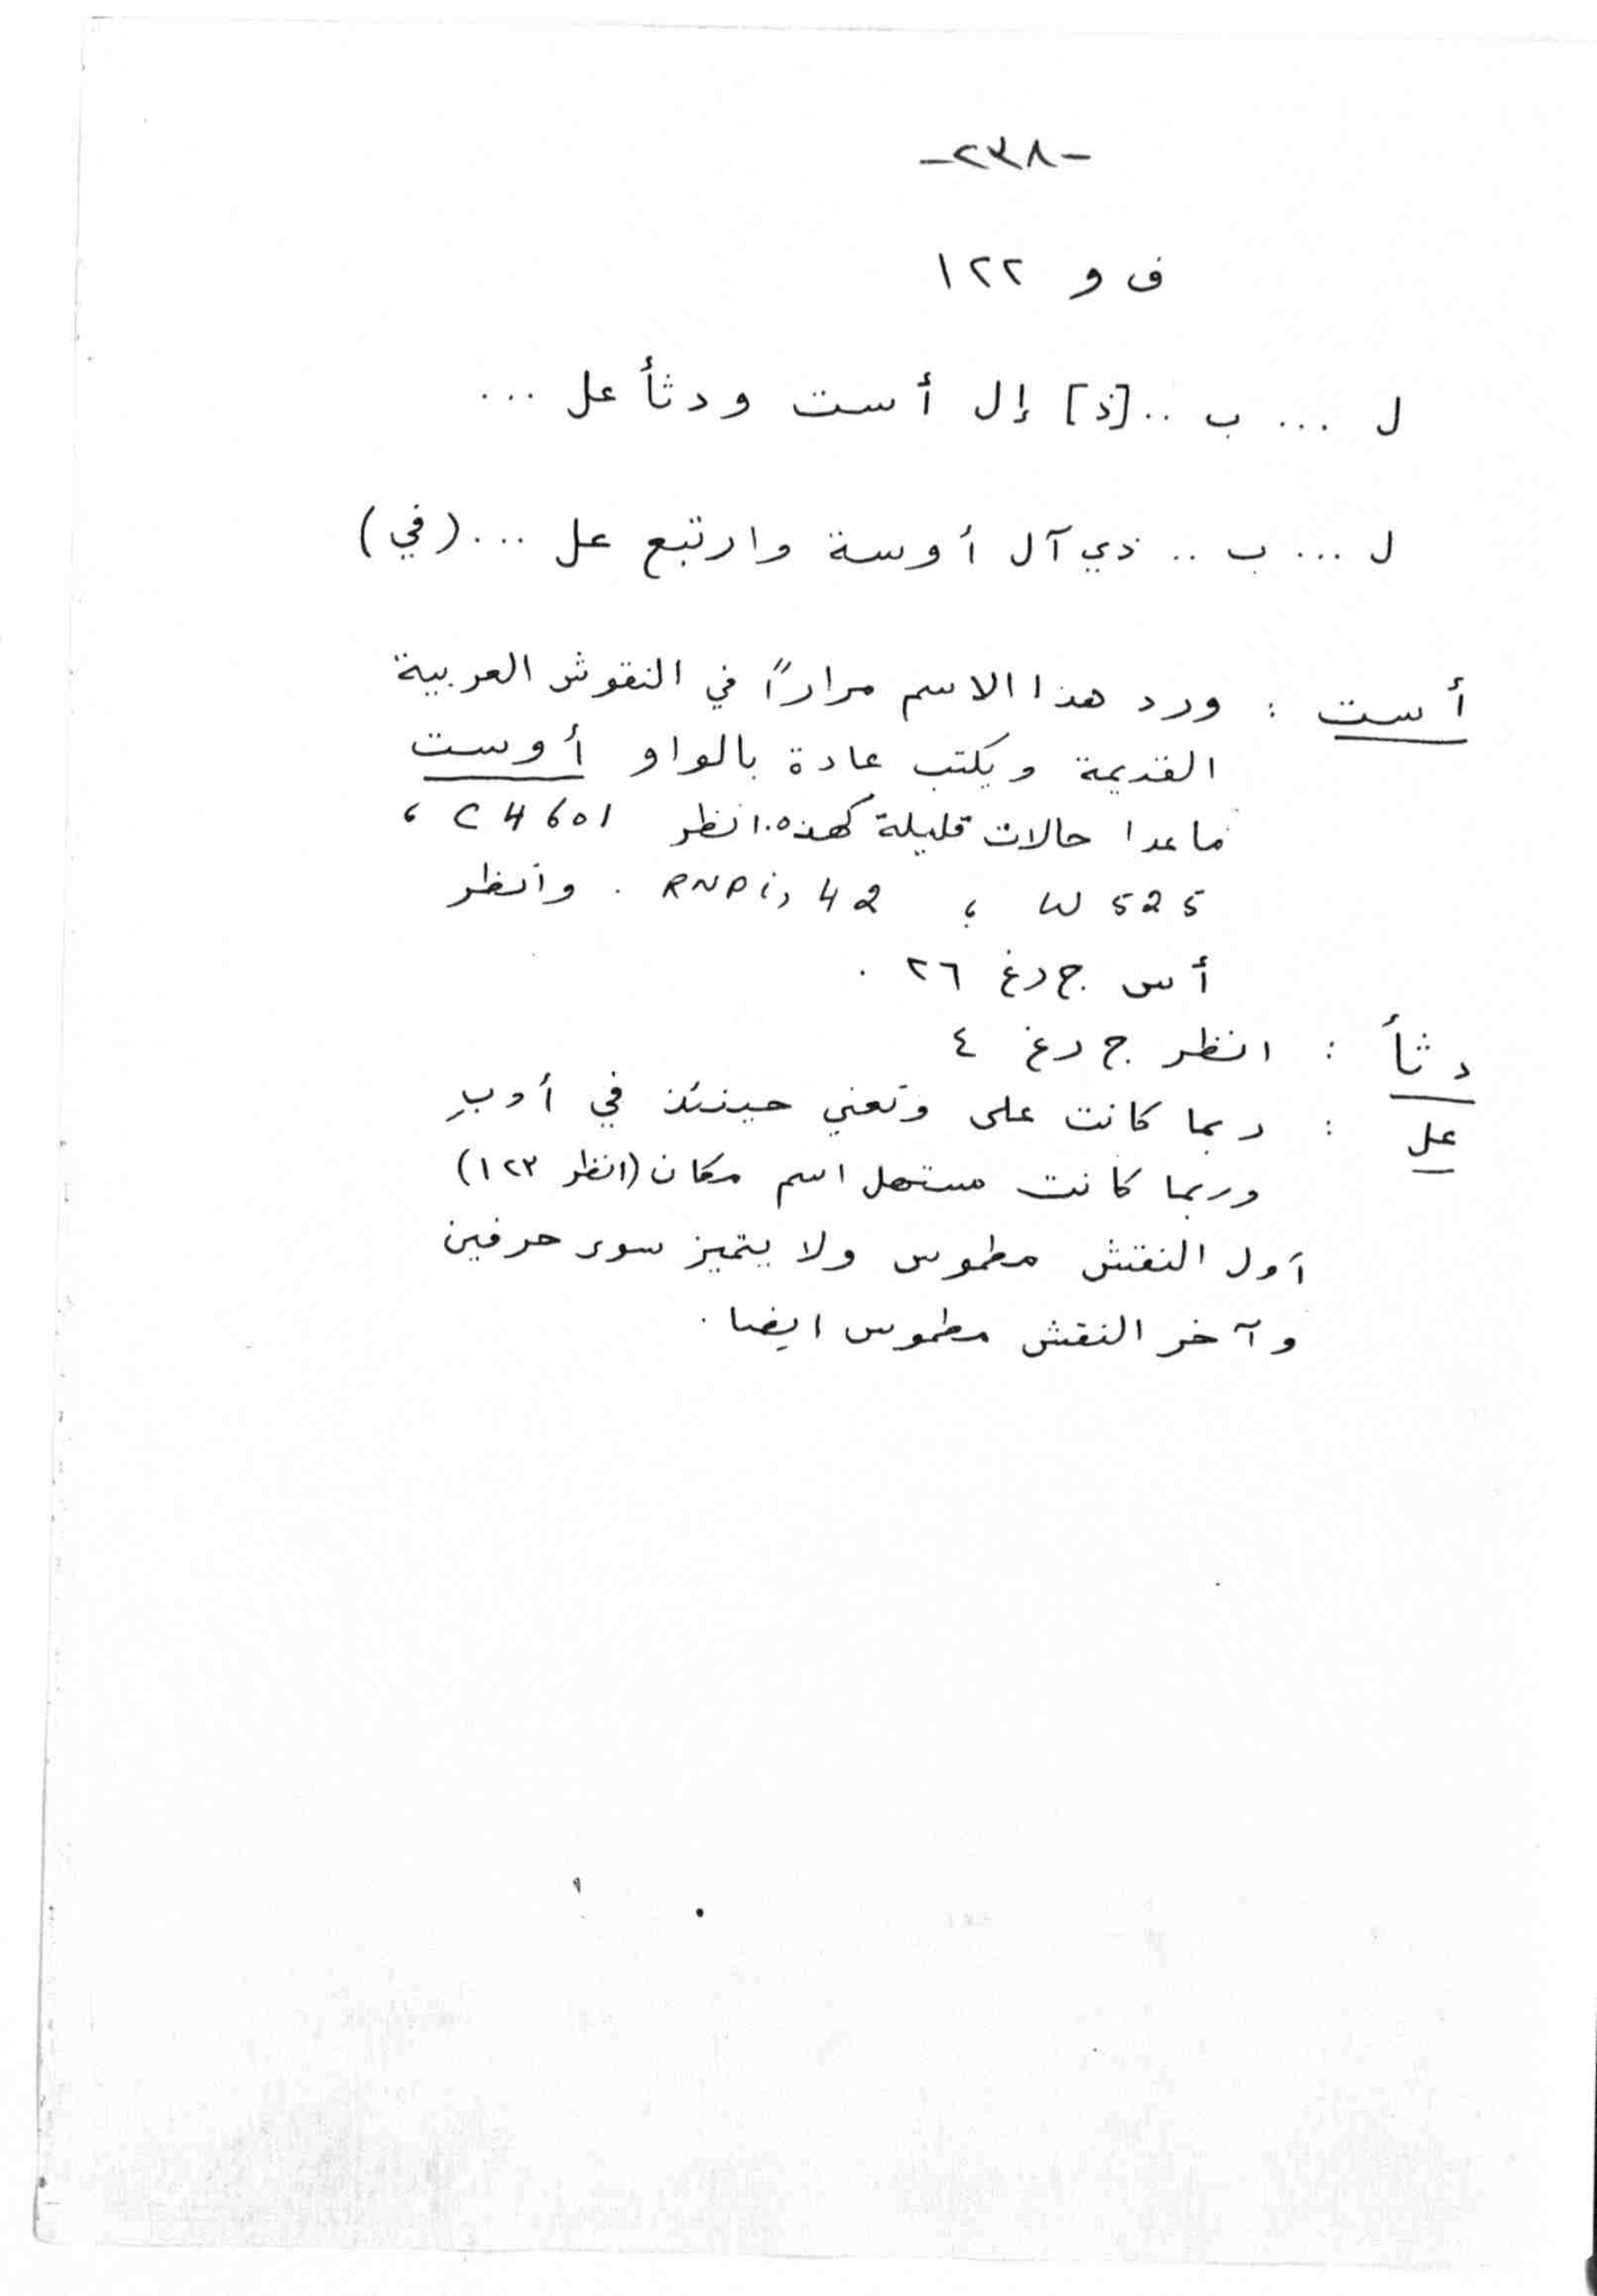 -٢٣٨-
ف و ١٢٢
ل ... ب ..[ذ] إل أست ودثأ عل ...
ل ... ب .. ذي آل أوسة وارتبع عل ...(في)
أست : ورد هذا الاسم مراراً في النقوش العربية
القديمة ويكتب عادة بالواو أوست
ماعدا حالات قليلة كهذه. انظر C 4601 ،
W 525 ، 42 . وانظر
أس ج رغ ٢٦ .
دثأ : انظر ج رغ ٤
عل : ربما كانت على وتعني حينئذ في أو بِ
وربما كانت مستهل اسم مكان (انظر ١٢٣)
أول النقش مطموس ولا يتميز سوى حرفين
وآخر النقش مطموس ايضا .